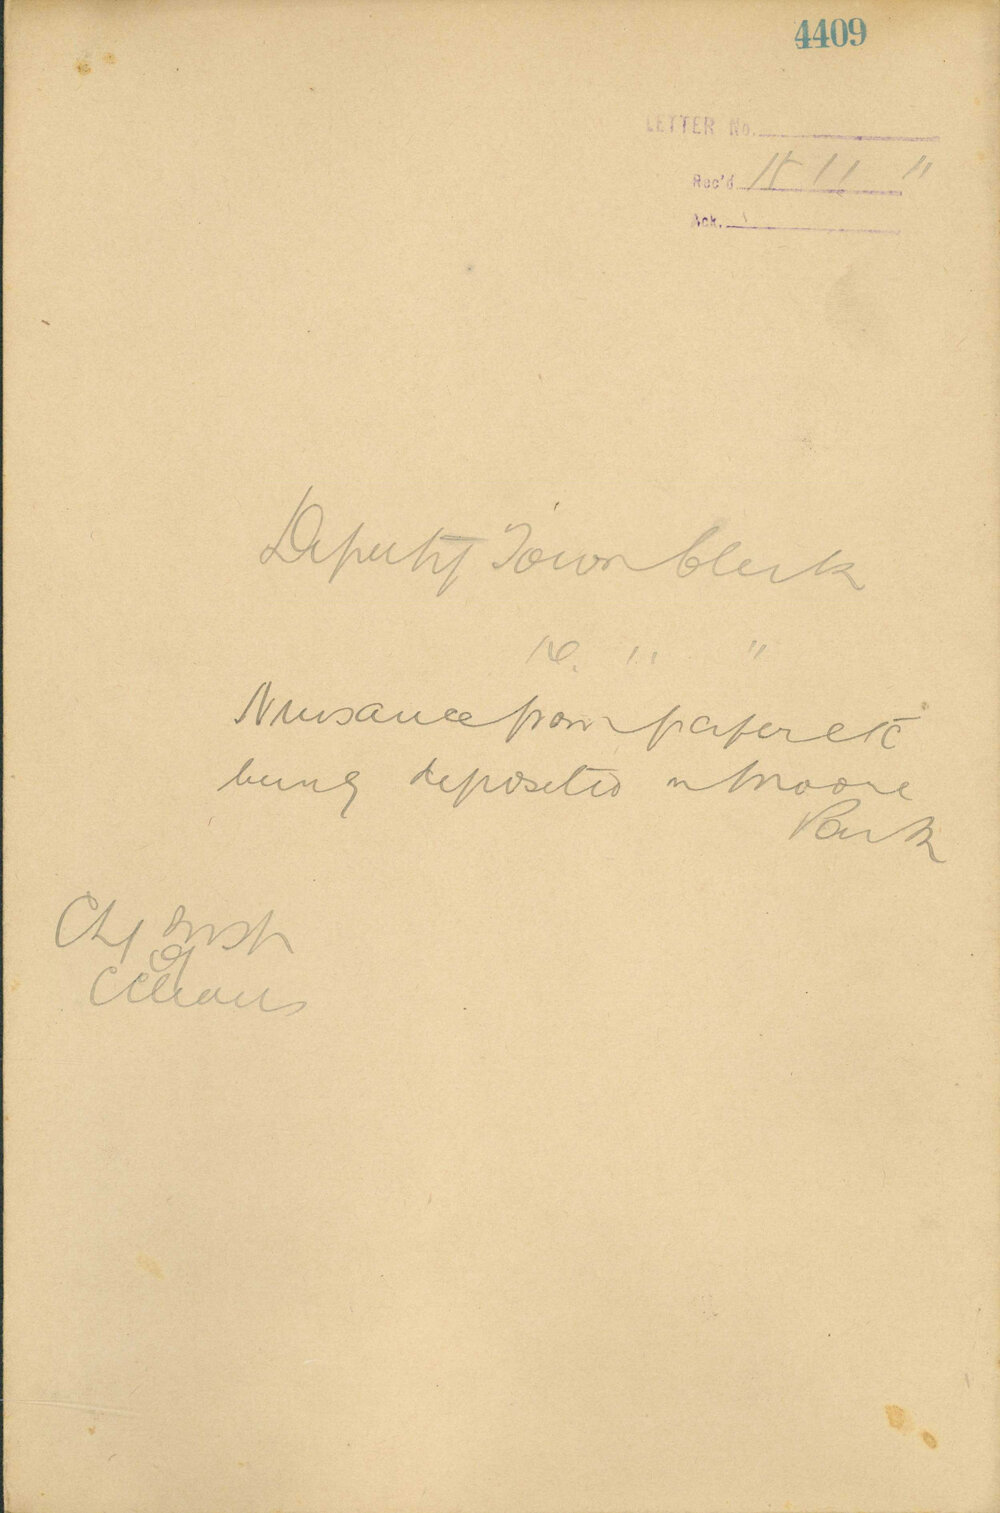 4409
LETTER No.
Rec'd 15 11 "
Ack.
Deputy Town Clerk
14. 11 "
Nuisance from paper etc
being deposited in Moore
Park
Cty Insp
of